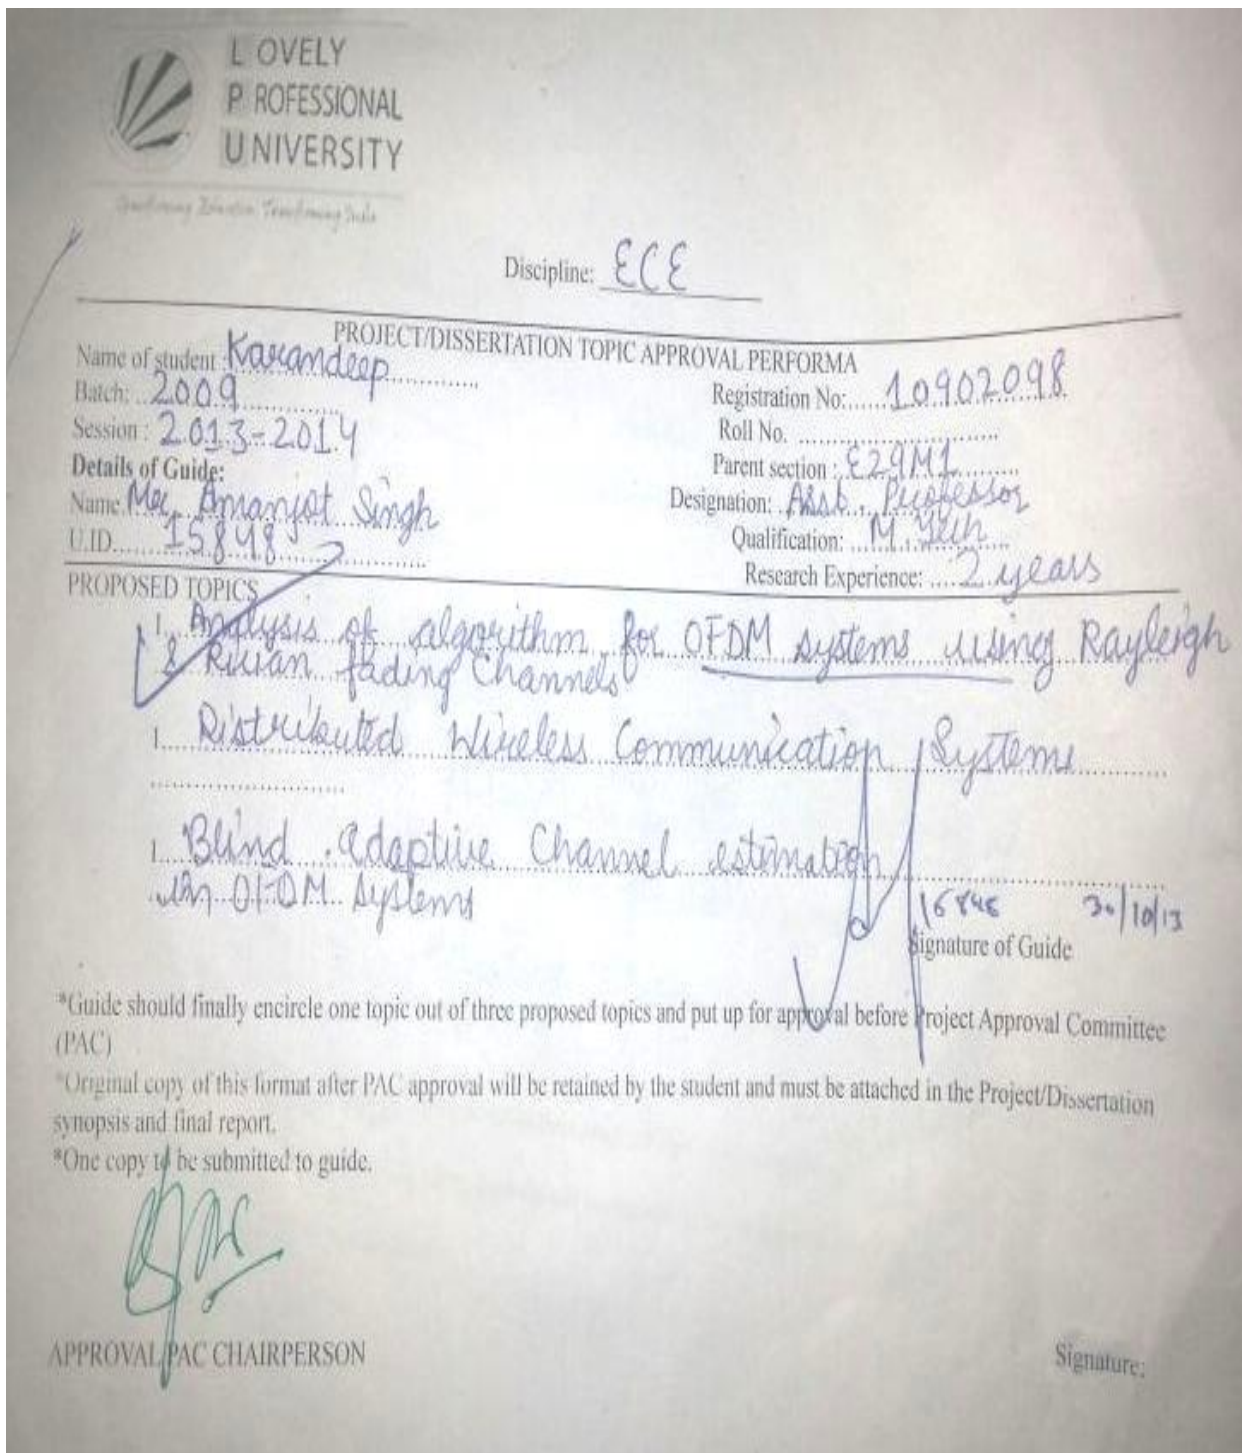 LOVELY
PROFESSIONAL
UNIVERSITY
Transforming Education Transforming India
Discipline: ECE
PROJECT/DISSERTATION TOPIC APPROVAL PERFORMA
Name of student : Karandeep
Registration No: 10902098
Batch: 2009
Roll No.
Session : 2013-2014
Parent section : E29M1
Details of Guide:
Designation: Asst. Professor
Name Mr. Amanjot Singh
Qualification: M.Tech
U.ID 15848
Research Experience: 2 years
PROPOSED TOPICS
1. Analysis of algorithm for OFDM systems using Rayleigh
& Rician fading Channels
1. Distributed Wireless Communication Systems
1. Blind adaptive Channel estimation
in OFDM systems
30/10/13
Signature of Guide
*Guide should finally encircle one topic out of three proposed topics and put up for approval before Project Approval Committee
(PAC)
*Original copy of this format after PAC approval will be retained by the student and must be attached in the Project/Dissertation
synopsis and final report.
*One copy to be submitted to guide.
APPROVAL PAC CHAIRPERSON
Signature: